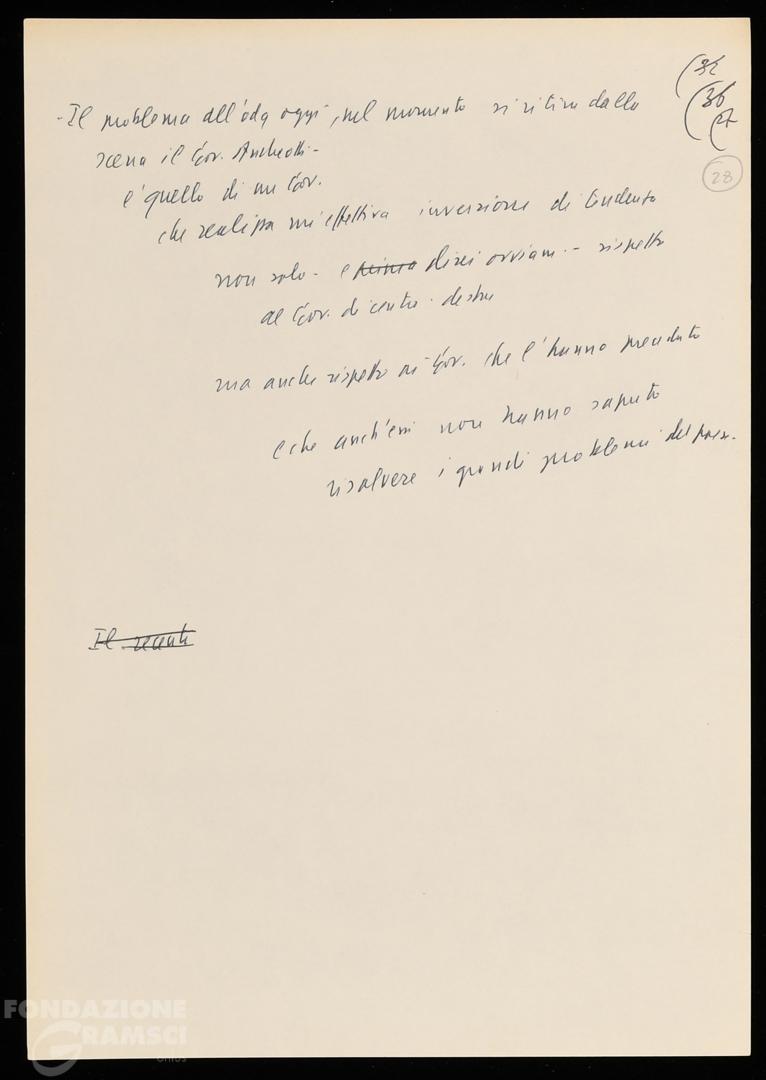 (32
(36
(27
28
- Il problema all'odg oggi, nel momento si ritira dalla
scena il Gov. Andreotti -
e' quello di un Gov.
che realizza un'effettiva inversione di tendenza
non solo - e direi ovviam. - rispetto
al Gov. di centro-destra
ma anche rispetto ai Gov. che l'hanno preceduto
e che anch'essi non hanno saputo
risolvere i grandi problemi del paese.
Il recente
FONDAZIONE
GRAMSCI
ONLUS